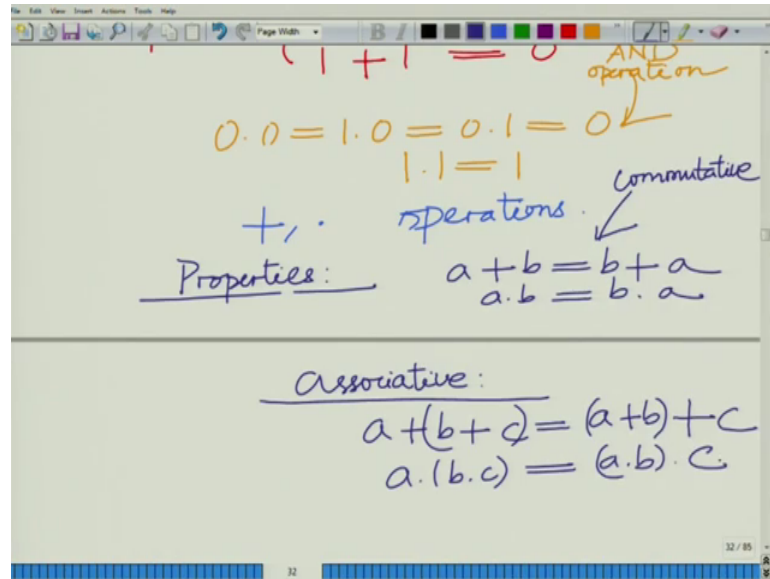 File Edit View Insert Actions Tools Help
Page Width
1 + 1 = 0
AND
operation
0.0 = 1.0 = 0.1 = 0
1.1 = 1
commutative
+, . operations.
Properties: a + b = b + a
a.b = b.a
Associative:
a+(b+c) = (a+b)+c
a.(b.c) = (a.b).c.
32 / 85
32